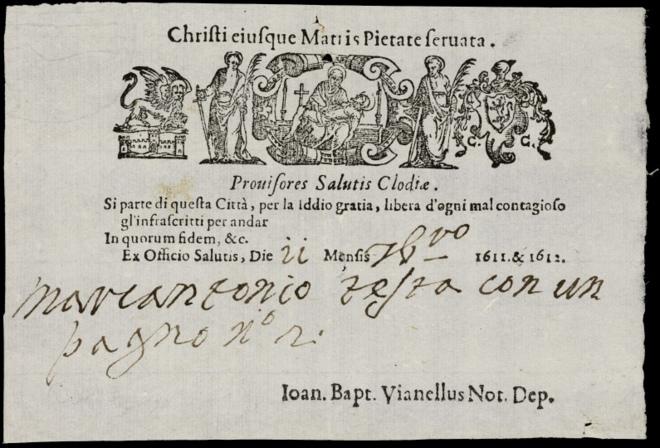 Christi eiusque Matris Pietate seruata.
C. C.
Prouisores Salutis Clodiæ.
Si parte di questa Città, per la Iddio gratia, libera d'ogni mal contagioso
gl'infrascritti per andar
In quorum fidem, &c.
Ex Officio Salutis, Die 11 Mensis 1611. & 1612.
marcantonio testa con un
pagno nº 2.
Ioan. Bapt. Vianellus Not. Dep.